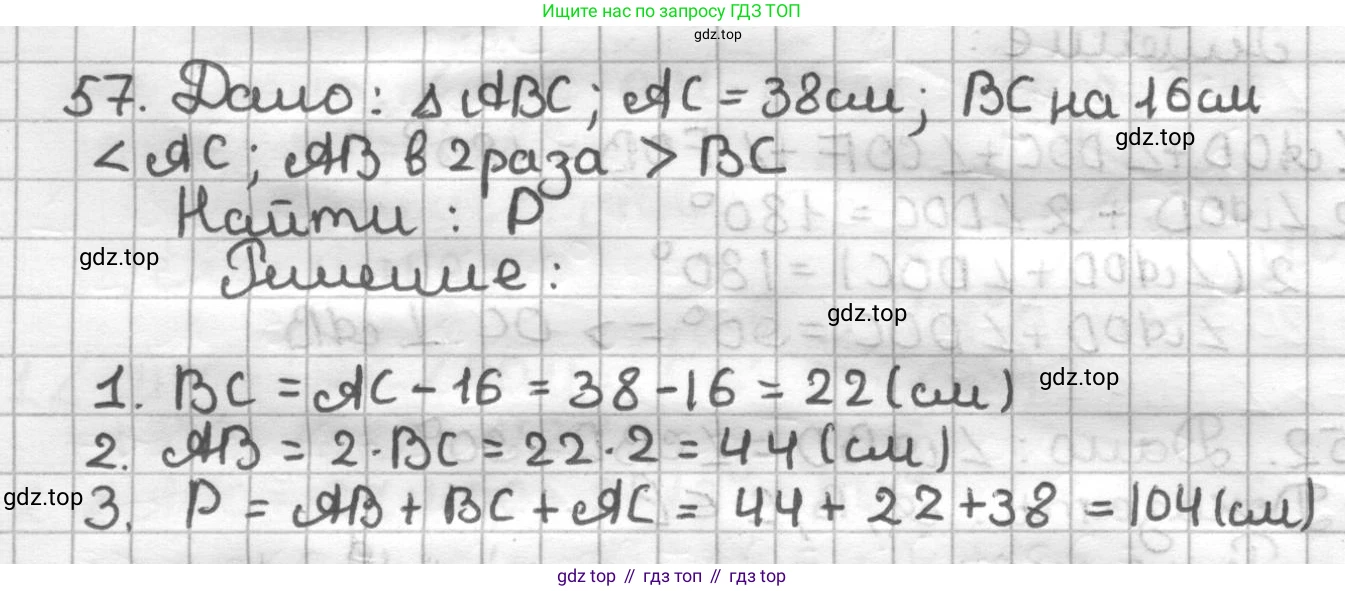 Ищите нас по запросу ГДЗ ТОП
gdz.top
57. Дано: △ABC; AC = 38см; BC на 16см
gdz.top
< AC; AB в 2 раза > BC
Найти: P
gdz.top
Решение:
gdz.top
1. BC = AC - 16 = 38 - 16 = 22 (см)
gdz.top
2. AB = 2 · BC = 22 · 2 = 44 (см)
gdz.top
3. P = AB + BC + AC = 44 + 22 + 38 = 104 (см)
gdz top // гдз топ // гдз top